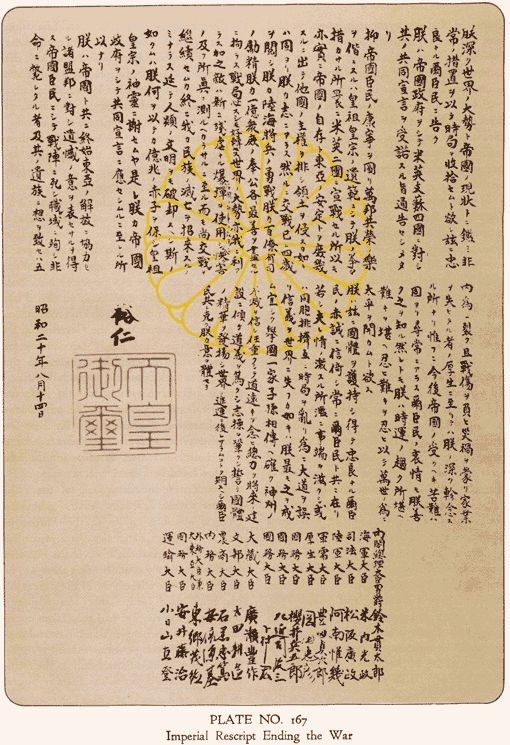 朕深ク世界ノ大勢ト帝國ノ現狀トニ鑑ミ非
常ノ措置ヲ以テ時局ヲ收拾セムト欲シ茲ニ忠
良ナル爾臣民ニ告ク
朕ハ帝國政府ヲシテ米英支蘇四國ニ對シ
其ノ共同宣言ヲ受諾スル旨通告セシメタ
リ
抑帝國臣民ノ康寧ヲ圖リ萬邦共榮ノ樂
ヲ偕ニスルハ皇祖皇宗ノ遺範ニシテ朕ノ拳々
措カサル所曩ニ米英二國ニ宣戰セル所以モ
亦實ニ帝國ノ自存ト東亞ノ安定トヲ庶幾
スルニ出テ他國ノ主權ヲ排シ領土ヲ侵スカ如キ
ハ固ヨリ朕カ志ニアラス然ルニ交戰已ニ四歲
ヲ閱シ朕カ陸海將兵ノ勇戰朕カ百僚有司
ノ勵精朕カ一億衆庶ノ奉公各最善ヲ盡セル
ニ拘ラス戰局必スシモ好轉セス世界ノ大勢亦我ニ利
アラス加之敵ハ新ニ殘虐ナル爆彈ヲ使用シテ慘害
ノ及フ所眞ニ測ルヘカラサルニ至ル而モ尚交戰ヲ
繼續セムカ終ニ我カ民族ノ滅亡ヲ招來スルノ
ミナラス延テ人類ノ文明ヲモ破却スヘシ斯ノ
如クムハ朕何ヲ以テカ億兆ノ赤子ヲ保シ皇祖
皇宗ノ神靈ニ謝セムヤ是レ朕カ帝國
政府ヲシテ共同宣言ニ應セシムルニ至レル所
以ナリ
朕ハ帝國ト共ニ終始東亞ノ解放ニ協力セ
ル諸盟邦ニ對シ遺憾ノ意ヲ表セサルヲ得
ス帝國臣民ニシテ戰陣ニ死シ職域ニ殉シ非
命ニ斃レタル者及其ノ遺族ニ想ヲ致セハ五
內爲ニ裂ク且戰傷ヲ負ヒ災禍ヲ蒙リ家業
ヲ失ヒタル者ノ厚生ニ至リテハ朕ノ深ク軫念スル
所ナリ惟フニ今後帝國ノ受クヘキ苦難ハ
固ヨリ尋常ニアラス爾臣民ノ衷情モ朕善
ク之ヲ知ル然レトモ朕ハ時運ノ趨ク所堪ヘ
難キヲ堪ヘ忍ヒ難キヲ忍ヒ以テ萬世ノ爲ニ
太平ヲ開カムト欲ス
朕ハ茲ニ國體ヲ護持シ得テ忠良ナル爾臣
民ノ赤誠ニ信倚シ常ニ爾臣民ト共ニ在リ
若シ夫レ情ノ激スル所濫ニ事端ヲ滋クシ或ハ
同胞排擠互ニ時局ヲ亂リ爲ニ大道ヲ誤
リ信義ヲ世界ニ失フカ如キハ朕最モ之ヲ戒
ム宜シク擧國一家子孫相傳ヘ確ク神州ノ
不滅ヲ信シ任重クシテ道遠キヲ念ヒ總力ヲ將來ノ建
設ニ傾ケ道義ヲ篤クシ志操ヲ鞏クシ誓テ國體
ノ精華ヲ發揚シ世界ノ進運ニ後レサラムコトヲ期スヘシ爾臣
民其レ克ク朕カ意ヲ體セヨ
裕仁
天皇
御璽
昭和二十年八月十四日
內閣總理大臣男爵 鈴木貫太郎
海軍大臣 米內光政
司法大臣 松阪廣政
陸軍大臣 阿南惟幾
軍需大臣 豐田貞次郎
厚生大臣 岡田忠彥
國務大臣 櫻井兵五郎
國務大臣 左近司政三
國務大臣 下村宏
大藏大臣 廣瀨豐作
文部大臣 太田耕造
農商大臣 石黑忠篤
內務大臣 安倍源基
外務大臣兼大東亞大臣 東鄉茂德
國務大臣 安井藤治
運輸大臣 小日山直登
PLATE NO. 167
Imperial Rescript Ending the War